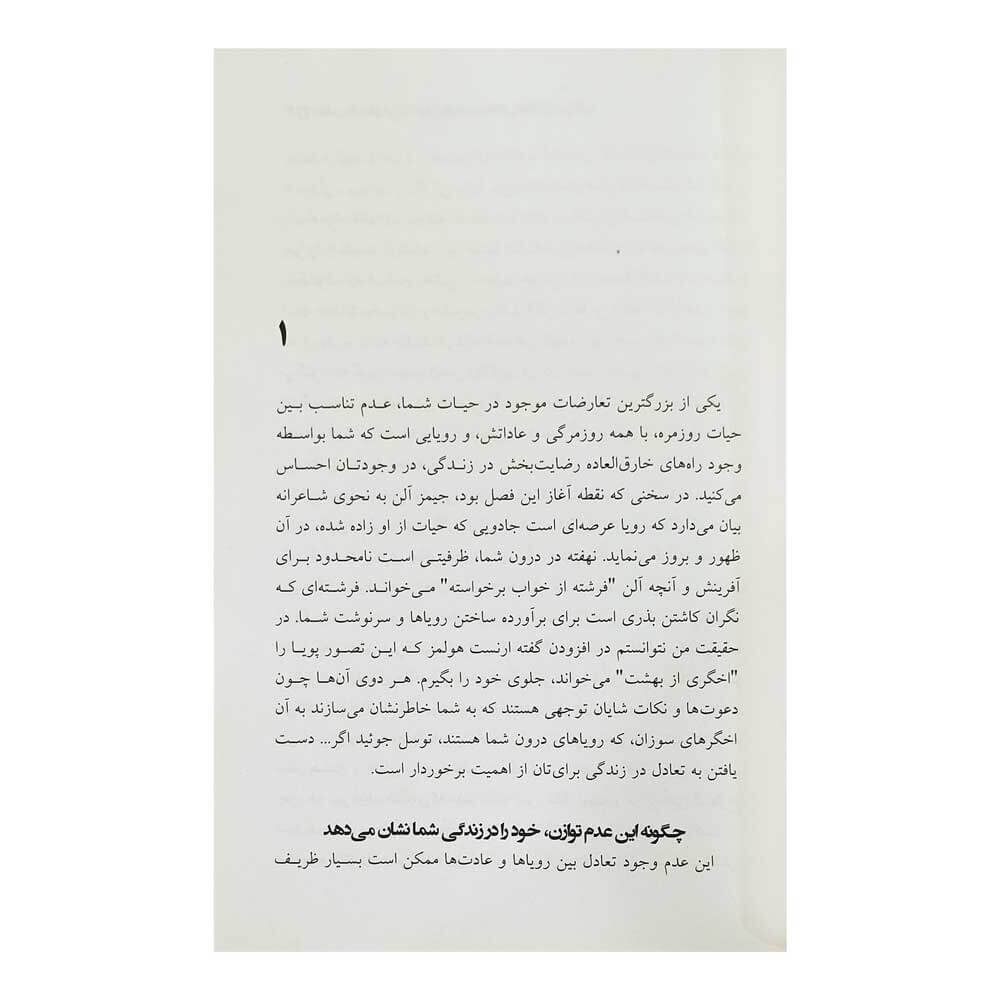 ۱
یکی از بزرگترین تعارضات موجود در حیات شما، عدم تناسب بین
حیات روزمره، با همه روزمرگی و عاداتش، و رویایی است که شما بواسطه
وجود راه‌های خارق‌العاده رضایت‌بخش در زندگی، در وجودتان احساس
می‌کنید. در سخنی که نقطه آغاز این فصل بود، جیمز آلن به نحوی شاعرانه
بیان می‌دارد که رویا عرصه‌ای است جادویی که حیات از او زاده شده، در آن
ظهور و بروز می‌نماید. نهفته در درون شما، ظرفیتی است نامحدود برای
آفرینش و آنچه آلن "فرشته از خواب برخواسته" می‌خواند. فرشته‌ای که
نگران کاشتن بذری است برای برآورده ساختن رویاها و سرنوشت شما. در
حقیقت من نتوانستم در افزودن گفته ارنست هولمز که این تصور پویا را
"اخگری از بهشت" می‌خواند، جلوی خود را بگیرم. هر دوی آن‌ها چون
دعوت‌ها و نکات شایان توجهی هستند که به شما خاطرنشان می‌سازند به آن
اخگرهای سوزان، که رویاهای درون شما هستند، توسل جوئید اگر... دست
یافتن به تعادل در زندگی برای‌تان از اهمیت برخوردار است.
چگونه این عدم توازن، خود را در زندگی شما نشان می‌دهد
این عدم وجود تعادل بین رویاها و عادت‌ها ممکن است بسیار ظریف